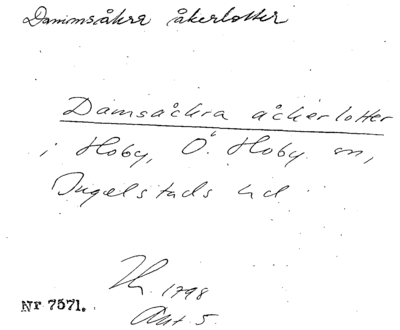 Dammsåkra åkerlotter
Damsåckra åckerlotter
i Hoby, Ö. Hoby sn,
Ingelstads hd
1798
Nr 7571.
Akt 5.